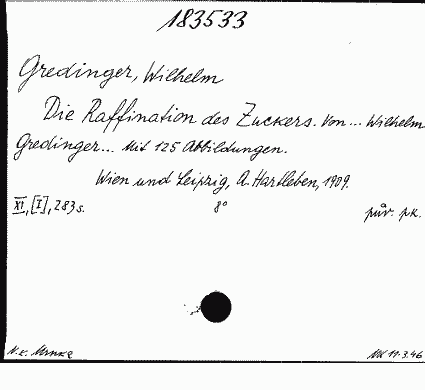 183533
Gredinger, Wilhelm
Die Raffination des Zuckers. Von... Wilhelm
Gredinger... Mit 125 Abbildungen.
Wien und Leipzig, A. Hartleben, 1909.
XI, [I], 283 s. 8° pův. pk.
11.3.46